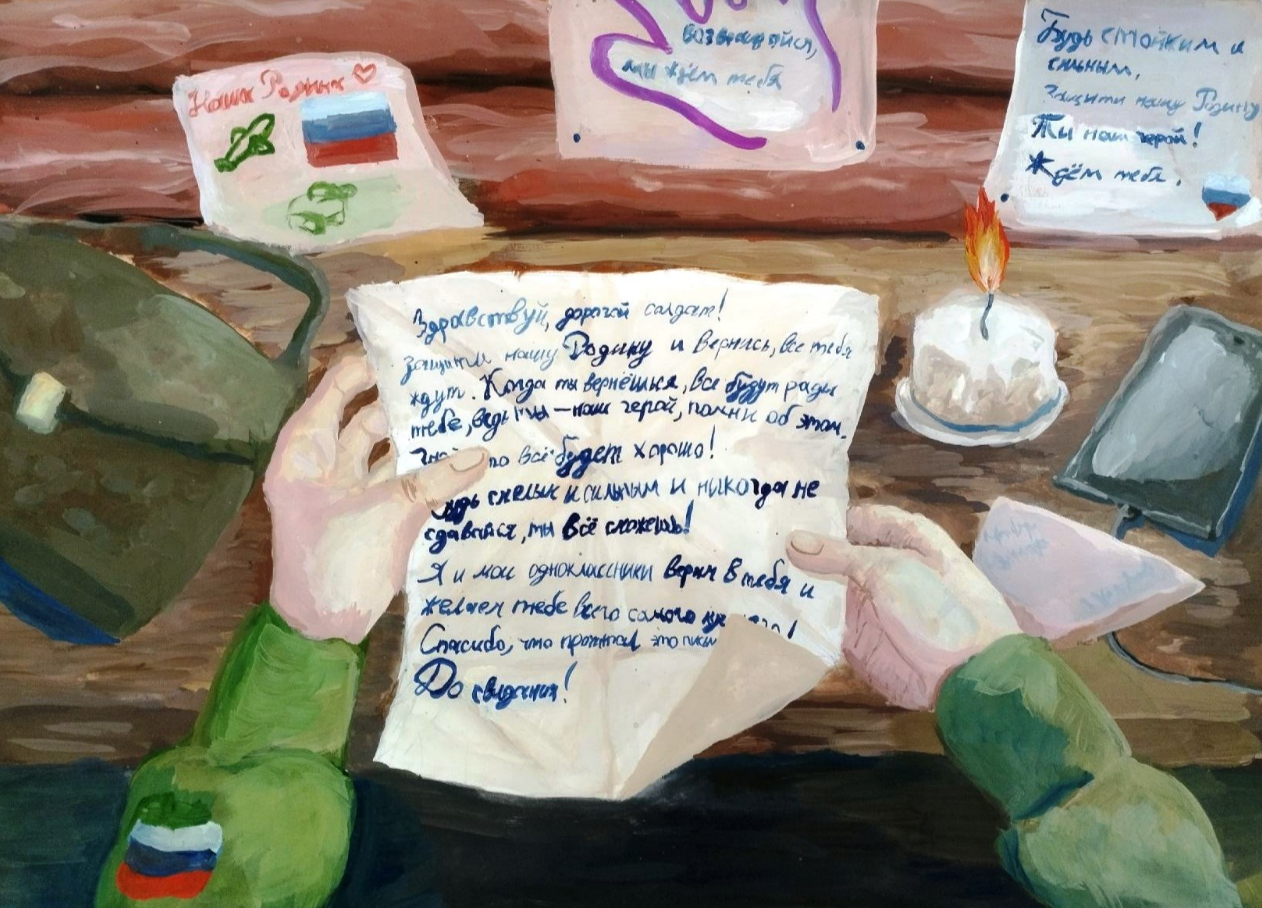 Наша Родина
возвращайся,
мы ждём тебя
Будь стойким и
сильным.
Защити нашу Родину
Ты наш герой!
Ждём тебя.
Здравствуй, дорогой солдат!
защити нашу Родину и вернись, все тебя
ждут. Когда ты вернёшься, все будут рады
тебе, ведь ты – наш герой, помни об этом.
всё будет хорошо!
смелым и сильным и никогда не
сдавайся, ты всё сможешь!
Я и мои одноклассники верим в тебя и
желаем тебе всего самого
Спасибо, что прочитал это
До свидания!